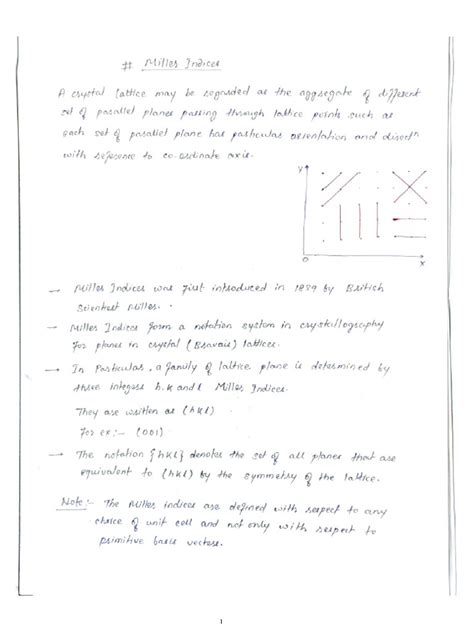 # Miller Indices
A crystal lattice may be regarded as the aggregate of different
set of parallel planes passing through lattice points such as
each set of parallel plane has particular orientation and directn
with reference to co-ordinate axis.
Y
O
X
→ Miller Indices was first introduced in 1839 by British
Scientest Miller.
→ Miller Indices form a notation system in crystallography
for planes in crystal (Bravair) lattices.
→ In Particular, a family of lattice plane is determined by
three integers h.k and l Miller Indices.
They are written as (hkl)
For ex:- (001)
→ The notation {hkl} denotes the set of all planes that are
equivalent to (hkl) by the symmetry of the lattice.
Note:- The Miller indices are defined with respect to any
choice of unit cell and not only with respect to
primitive basis vectors.
1